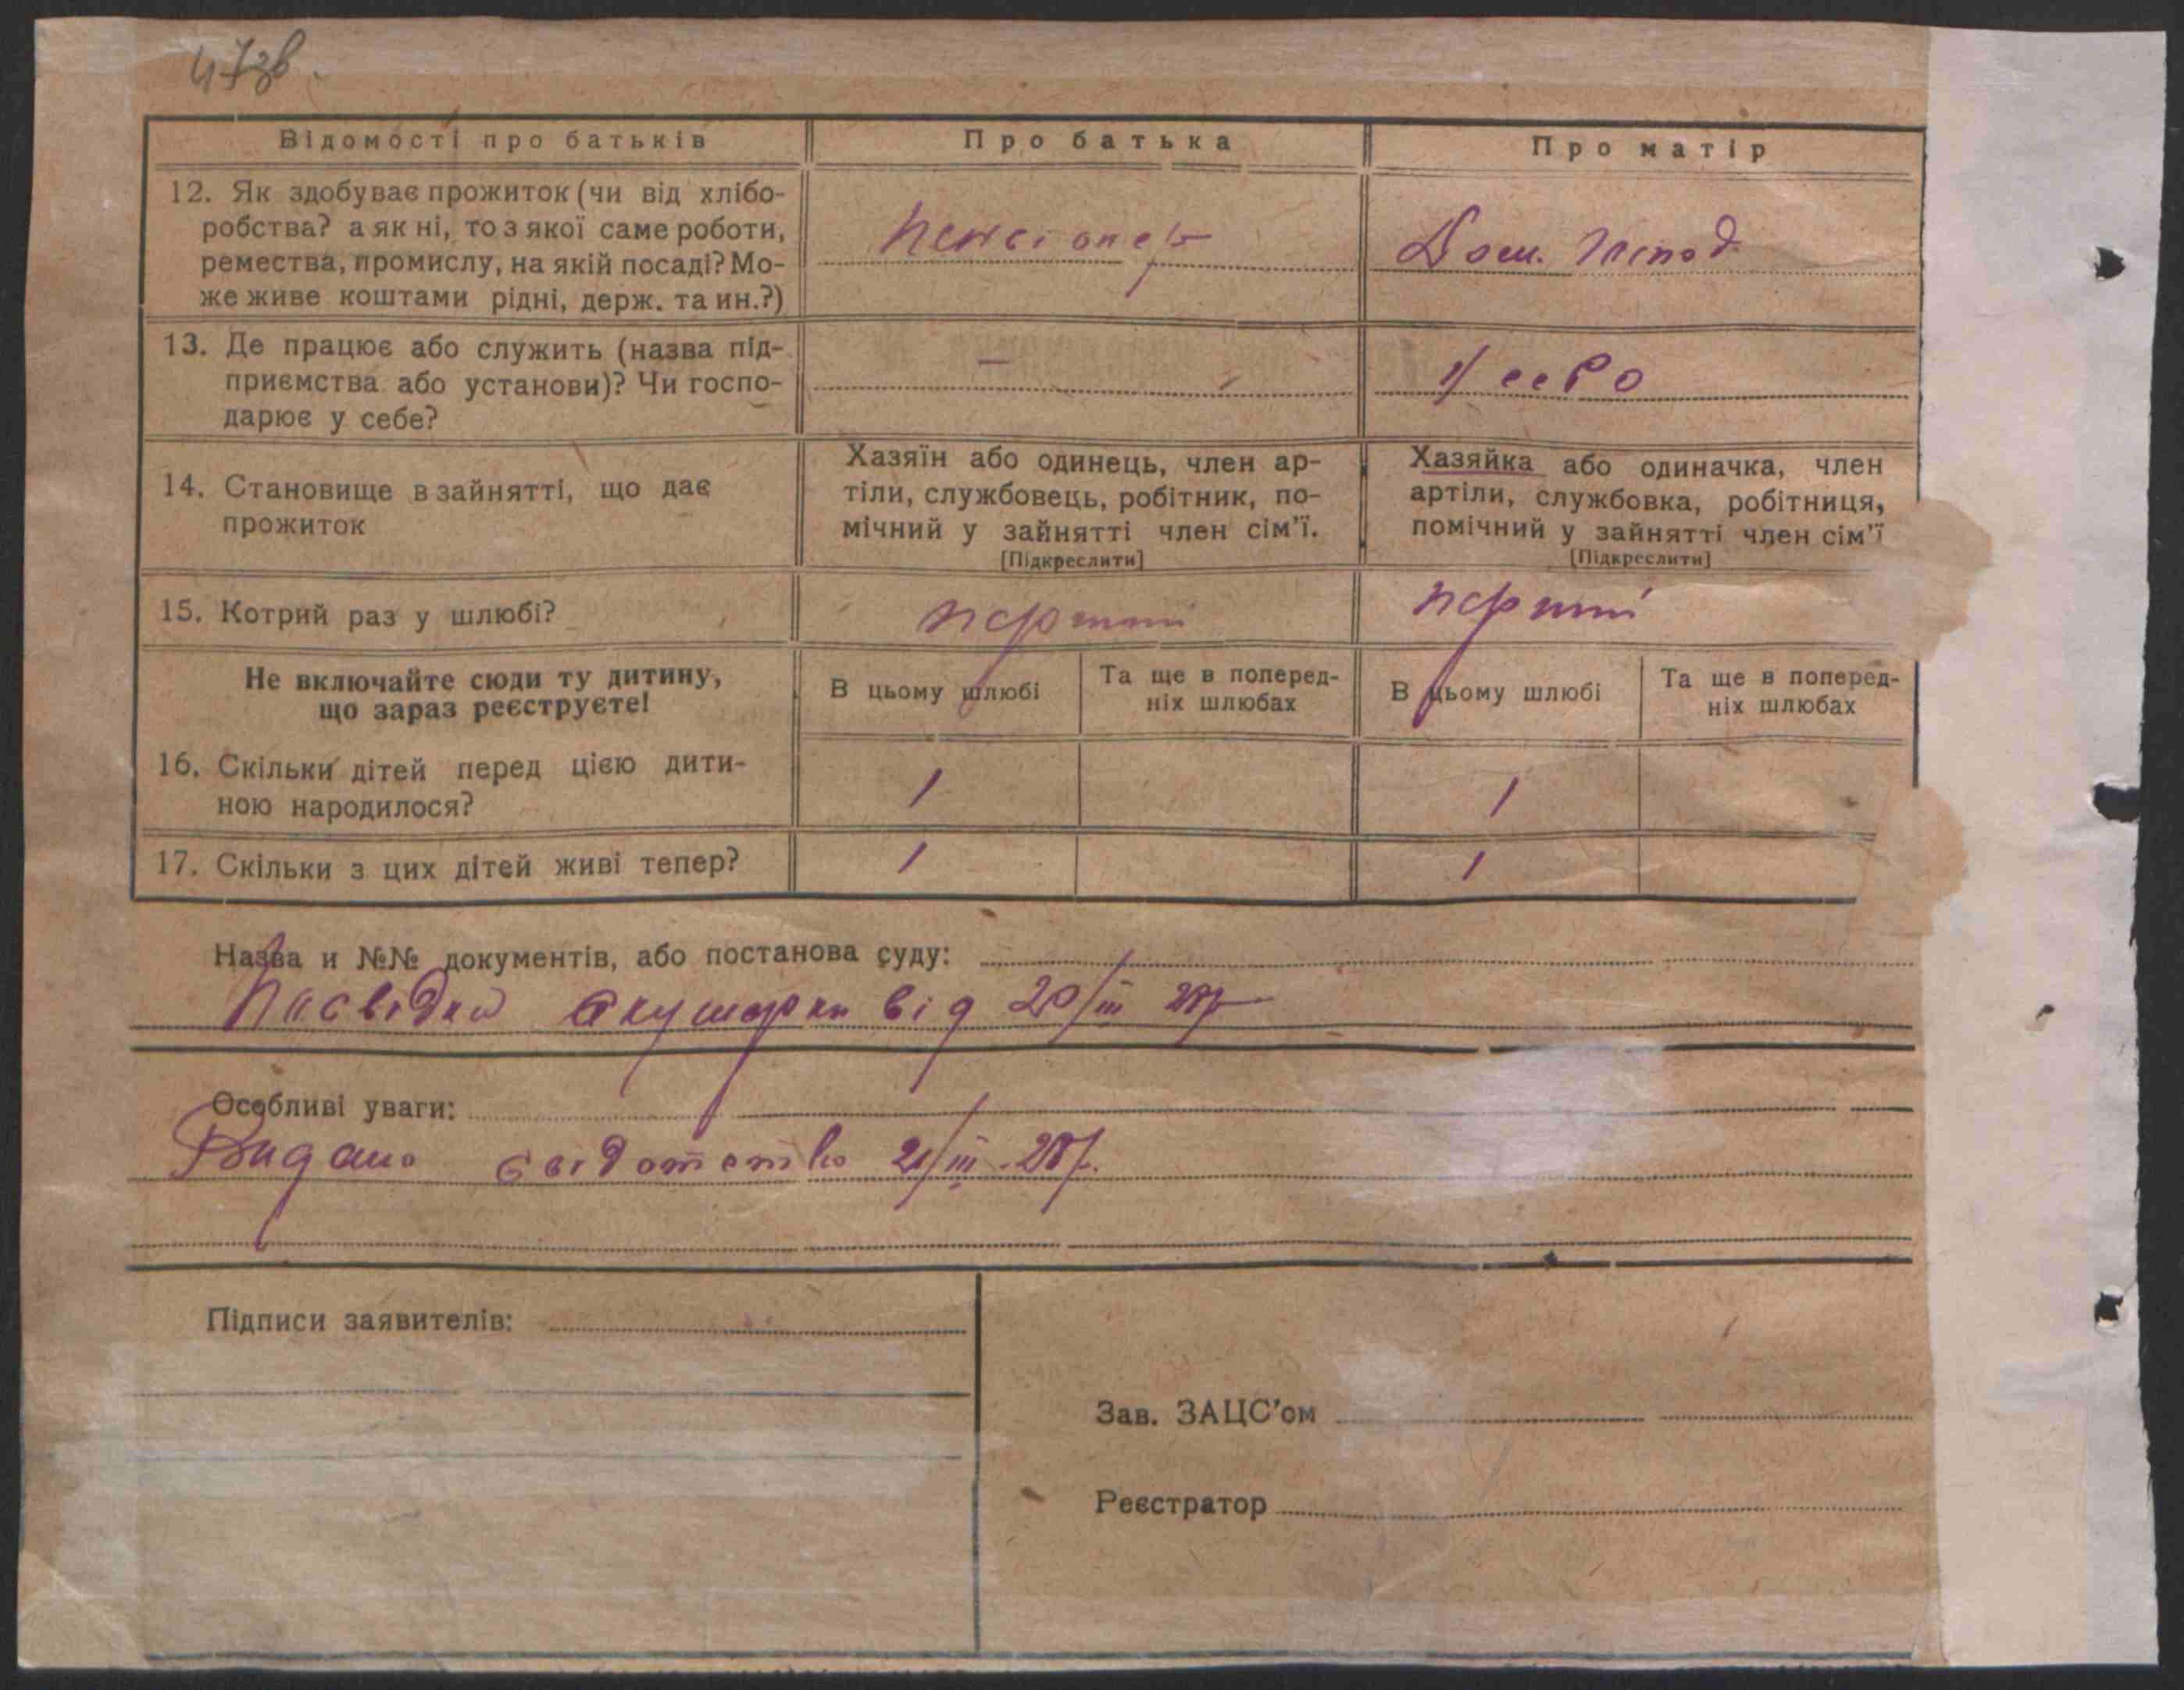 47зв.
Відомості про батьків
Про батька
Про матір
12. Як здобуває прожиток (чи від хлібо-
робства? а як ні, то з якої саме роботи,
ремества, промислу, на якій посаді? Мо-
же живе коштами рідні, держ. та ин.?)
пенсіонер
Дом. господ.
13. Де працює або служить (назва під-
приємства або установи)? Чи госпо-
дарює у себе?
—
14. Становище в зайнятті, що дає
прожиток
Хазяїн або одинець, член ар-
тіли, службовець, робітник, по-
мічний у зайнятті член сім'ї.
[Підкреслити]
Хазяйка або одиначка, член
артіли, службовка, робітниця,
помічний у зайнятті член сім'ї
[Підкреслити]
15. Котрий раз у шлюбі?
перший
перший
Не включайте сюди ту дитину,
що зараз реєструєте!
В цьому шлюбі
Та ще в поперед-
ніх шлюбах
В цьому шлюбі
Та ще в поперед-
ніх шлюбах
16. Скільки дітей перед цією дити-
ною народилося?
1
1
17. Скільки з цих дітей живі тепер?
1
1
Назва и №№ документів, або постанова суду:
Посвідка акушерки від 20/III 28р
Особливі уваги:
Видано свідотство 21/III-28р.
Підписи заявителів:
Зав. ЗАЦС'ом
Реєстратор